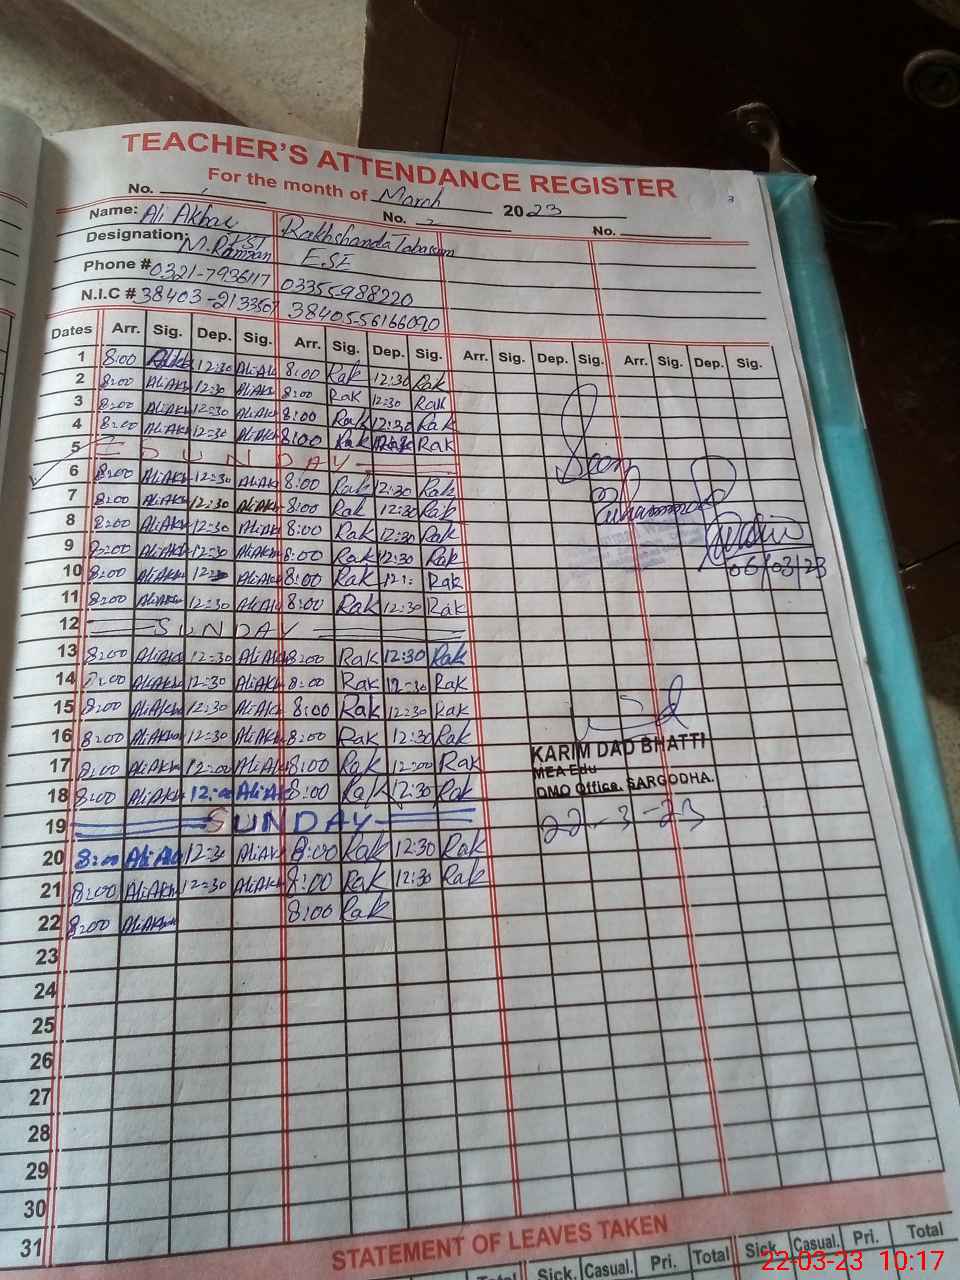 TEACHER'S ATTENDANCE REGISTER
For the month of March 2023
No. 1 No. 2 No.
Name: Ali Akbar Rakhshanda Tabassum
Designation: M. Ramzan E.S.E
Phone # 0321-7936117 03355988220
N.I.C # 38403-2133507 3840556166090
Dates Arr. Sig. Dep. Sig. Arr. Sig. Dep. Sig. Arr. Sig. Dep. Sig. Arr. Sig. Dep. Sig.
1 8:00 12:30 AliAk 8:00 Rak 12:30 Rak
2 8:00 AliAk 12:30 AliAk 8:00 Rak 12:30 Rak
3 8:00 AliAk 12:30 AliAk 8:00 Rak 12:30 Rak
4 8:00 AliAk 12:30 AliAk 8:00 Rak Rak
5 SUNDAY
6 8:00 AliAk 12:30 AliAk 8:00 Rak 12:30 Rak
7 8:00 AliAk 12:30 AliAk 8:00 Rak 12:30 Rak
8 8:00 AliAk 12:30 AliAk 8:00 Rak 12:30 Rak
9 8:00 AliAk 12:30 AliAk 8:00 Rak 12:30 Rak
10 8:00 AliAk AliAk 8:00 Rak Rak
11 8:00 AliAk 12:30 AliAk 8:00 Rak 12:30 Rak
12 SUNDAY
13 8:00 AliAk 12:30 AliAk 8:00 Rak 12:30 Rak
14 8:00 AliAk 12:30 AliAk 8:00 Rak 12:30 Rak
15 8:00 AliAk 12:30 AliAk 8:00 Rak 12:30 Rak
16 8:00 AliAk 12:30 AliAk 8:00 Rak 12:30 Rak
17 8:00 AliAk 12:00 AliAk 8:00 Rak 12:00 Rak
18 8:00 AliAk AliAk 8:00 Rak 12:30 Rak
19 SUNDAY
20 8:00 AliAk 12:30 AliAk 8:00 Rak 12:30 Rak
21 8:00 AliAk 12:30 AliAk 8:00 Rak 12:30 Rak
22 8:00 AliAk 8:00 Rak
23
24
25
26
27
28
29
30
31
Seen
Muhammad
06/03/23
KARIM DAD BHATTI
MEA Edu
DMO Office, SARGODHA.
22-3-23
STATEMENT OF LEAVES TAKEN
Total Sick. Casual. Pri. Total Sick. Casual. Pri. Total
22-03-23 10:17